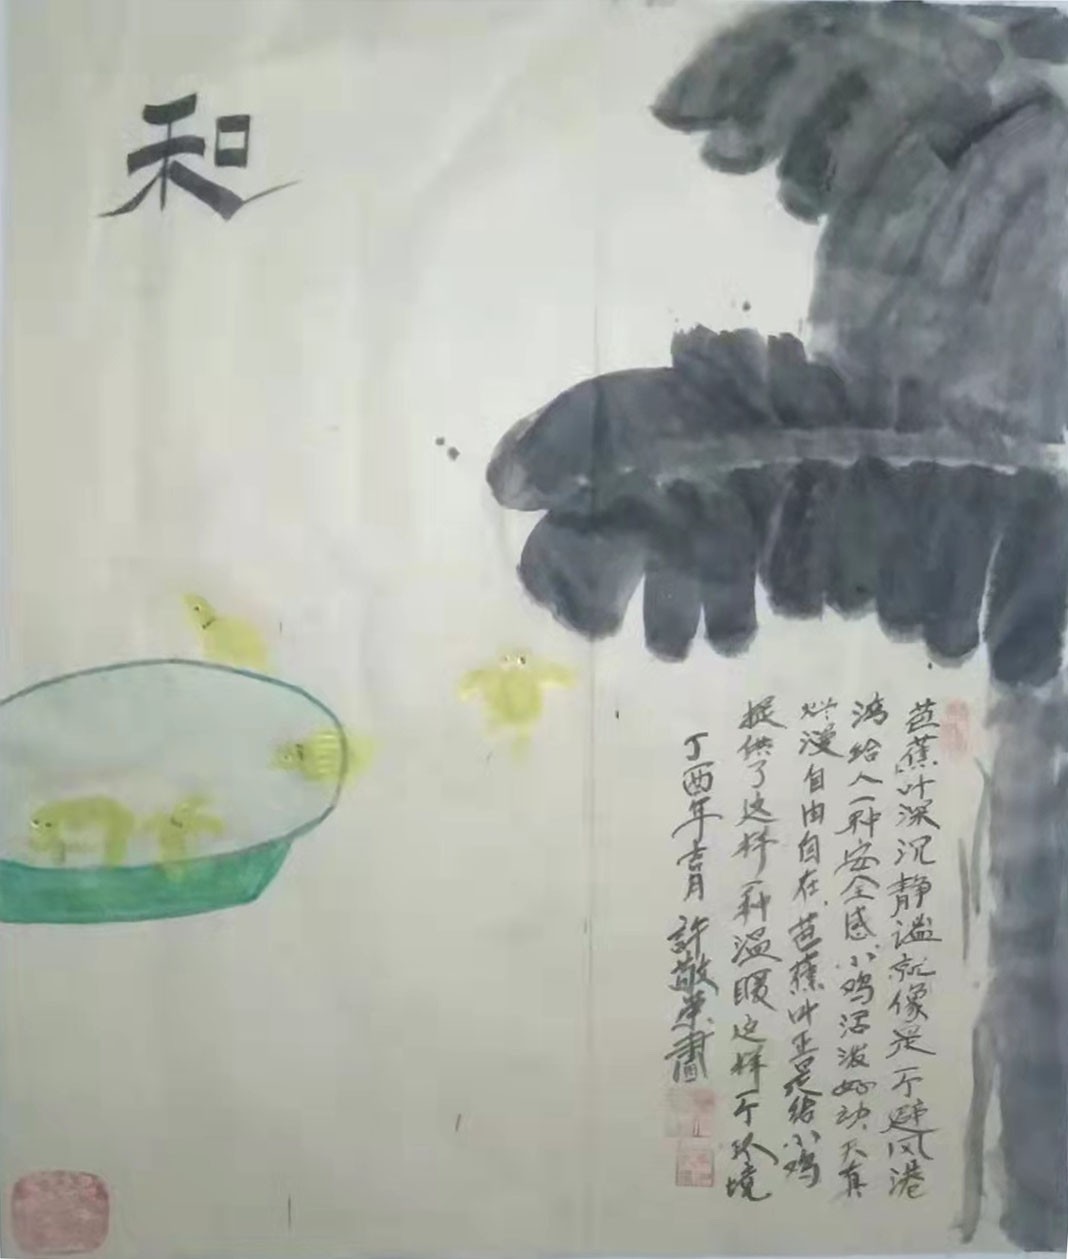 和
芭蕉叶深沉静谧就像是一个避风港
湾给人一种安全感小鸡活泼好动、天真
烂漫自由自在、芭蕉叶正是给小鸡
提供了这样一种温暖这样一个环境
丁酉年吉月 許敬荣畫